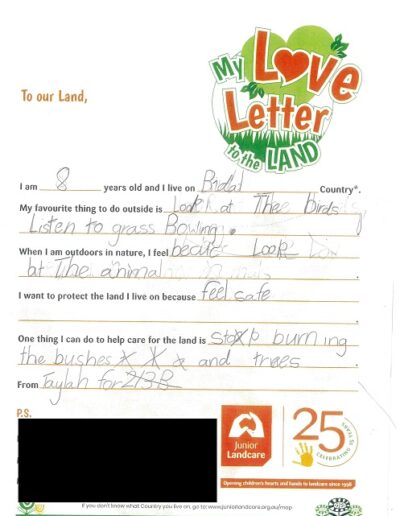 My Love
Letter
to the LAND
To our Land,
I am 8 years old and I live on Bridal Country*.
My favourite thing to do outside is Look at The birds
Listen to grass Bowling.
When I am outdoors in nature, I feel Look
at The animal
I want to protect the land I live on because feel safe
One thing I can do to help care for the land is stop burning
the bushes and trees
From Taylah
P.S.
Junior
Landcare
25 YEARS
CELEBRATING
Opening children's hearts and hands to landcare since 1998
If you don't know what Country you live on, go to: www.juniorlandcare.org.au/map